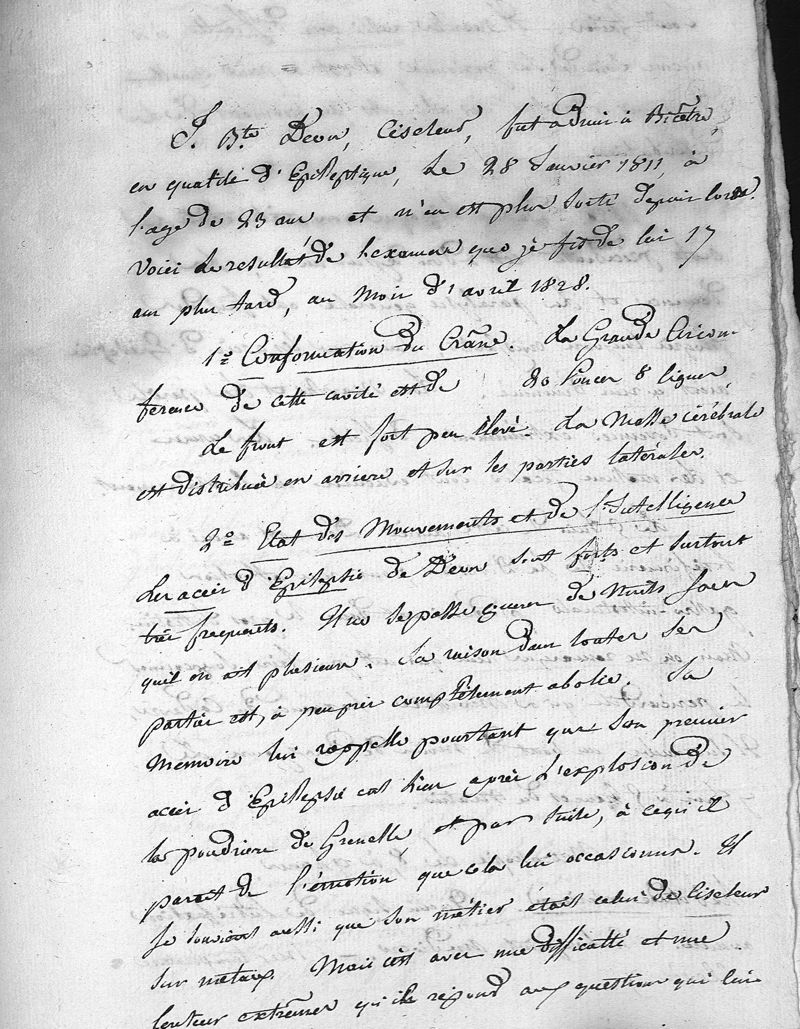 J. Bte Deon, Ciseleur, fut admis à Bicêtre,
en qualité d'Epileptique, le 28 Janvier 1811, à
l'age de 23 ans et n'en est plus sorti depuis lors.
Voici le resultat de l'examen que je fis de lui 17
ans plus tard, au Mois d'avril 1828.
1º Conformation du Crâne. La Grande Circon-
ference de cette cavité est de 20 Pouces 8 lignes,
Le front est fort peu élevé. La Masse cérébrale
est distribuée en arriere et sur les parties latérales.
2º Etat des Mouvements et de l'Intelligence
Les accès d'Epilepsie de Deon sont forts et surtout
très frequents. Il ne se passe gueres de Nuits sans
qu'il en ait plusieurs. Sa raison dans toutes ses
parties est, à peu près complètement abolie. Sa
Memoire lui rappelle pourtant que son premier
accès d'Epilepsie eut lieu après l'explosion de
la poudrière de Grenelle, et par suite, à ce qu'il
parait de l'émotion que cela lui occasionna. Il
se souvient aussi que son métier était celui de Ciseleur
sur métaux. Mais c'est avec une difficulté et une
lenteur extrêmes qu'il répond aux questions qui lui